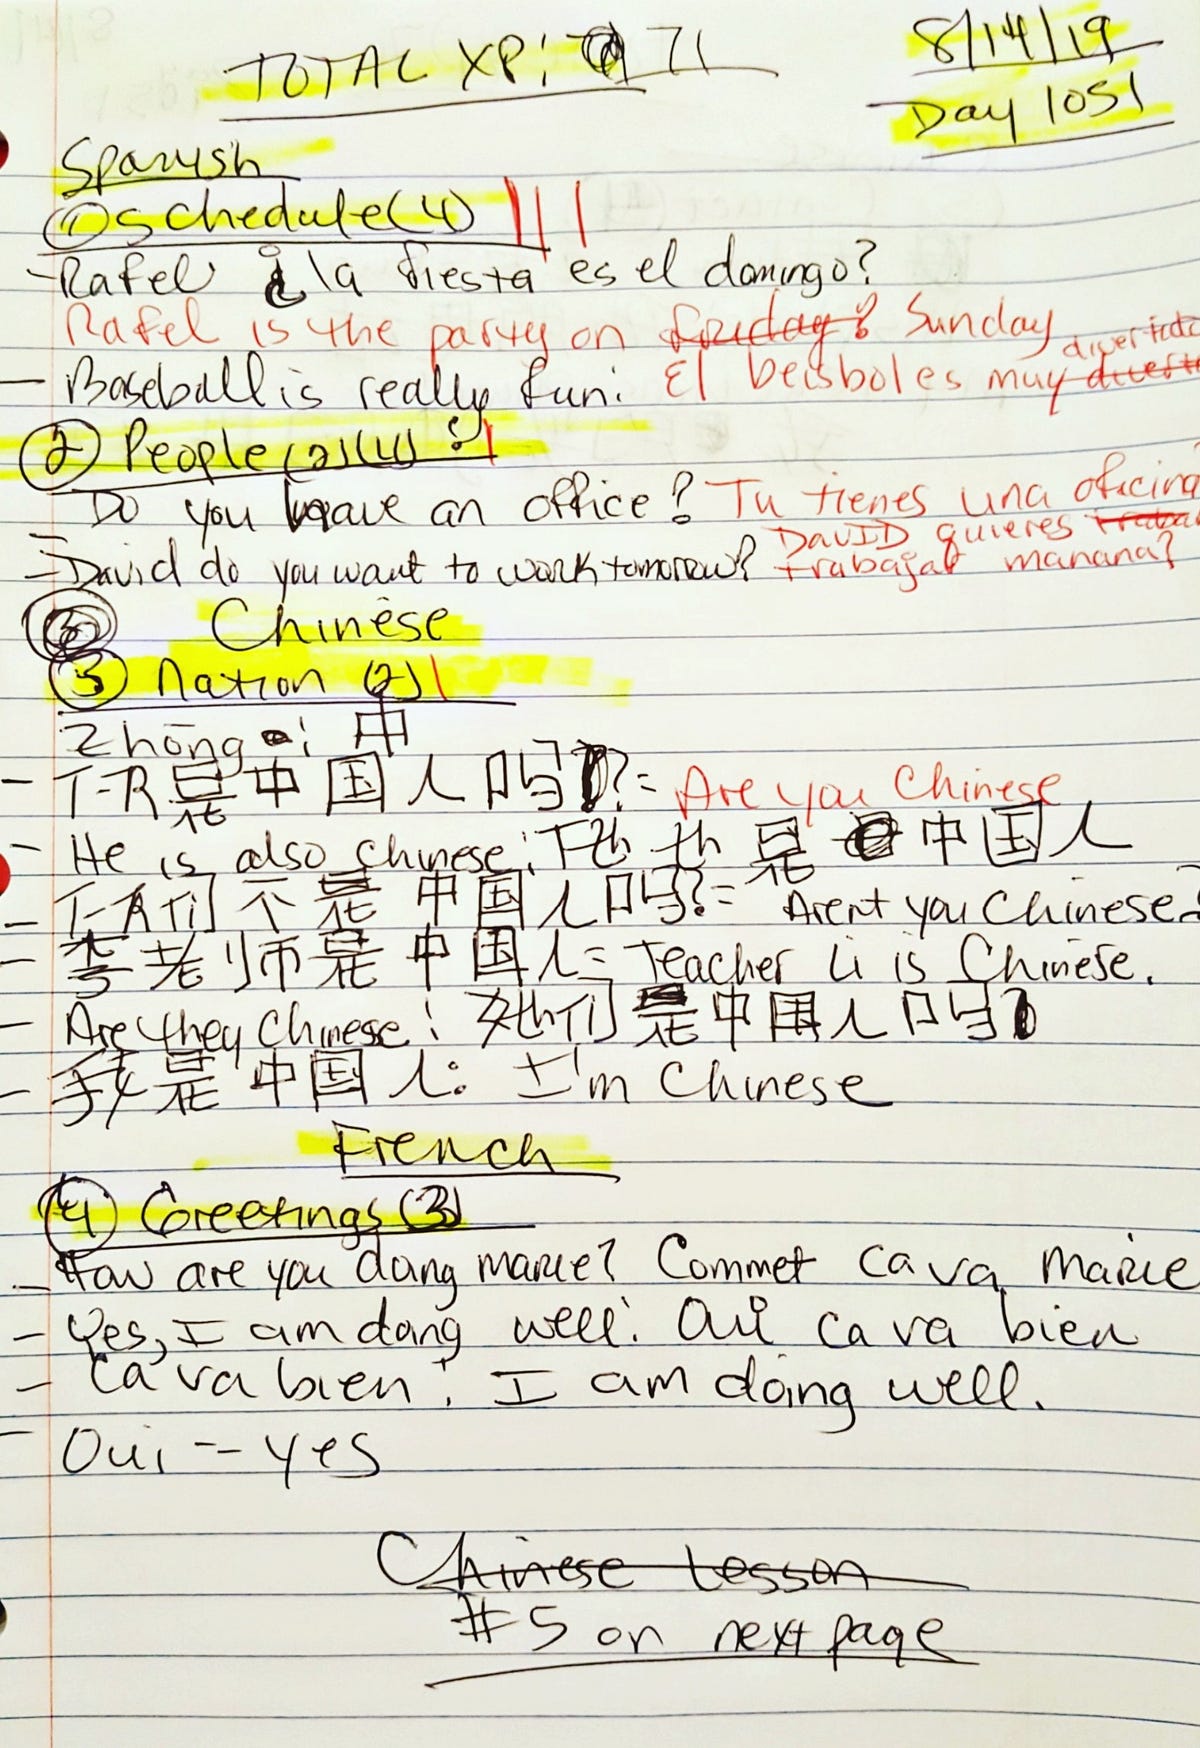 TOTAL XP: 71
8/14/19
Day 1051
Spanish
① Schedule (4) |||
- Rafel ¿la fiesta es el domingo?
Rafel is the party on friday? Sunday
- Baseball is really fun: El beisbol es muy divertido
② People (2)(4) : |
- Do you have an office? Tu tienes una oficina?
- David do you want to work tomorrow? DavID quieres trabajar manana?
Chinese
3 Nation (2) |
Zhōng : 中
- 你是中国人吗? = Are you Chinese
- He is also Chinese: 他也是中国人
- 你们不是中国人吗? = Arent you Chinese?
- 李老师是中国人 = Teacher Li is Chinese.
- Are they Chinese: 她们是中国人吗
- 我是中国人: I'm Chinese
French
④ Greetings (3)
- How are you doing marie? Commet ca va marie
- Yes, I am doing well: Oui ca va bien
- Ca va bien: I am doing well.
- Oui -- yes
Chinese Lesson
#5 on next page